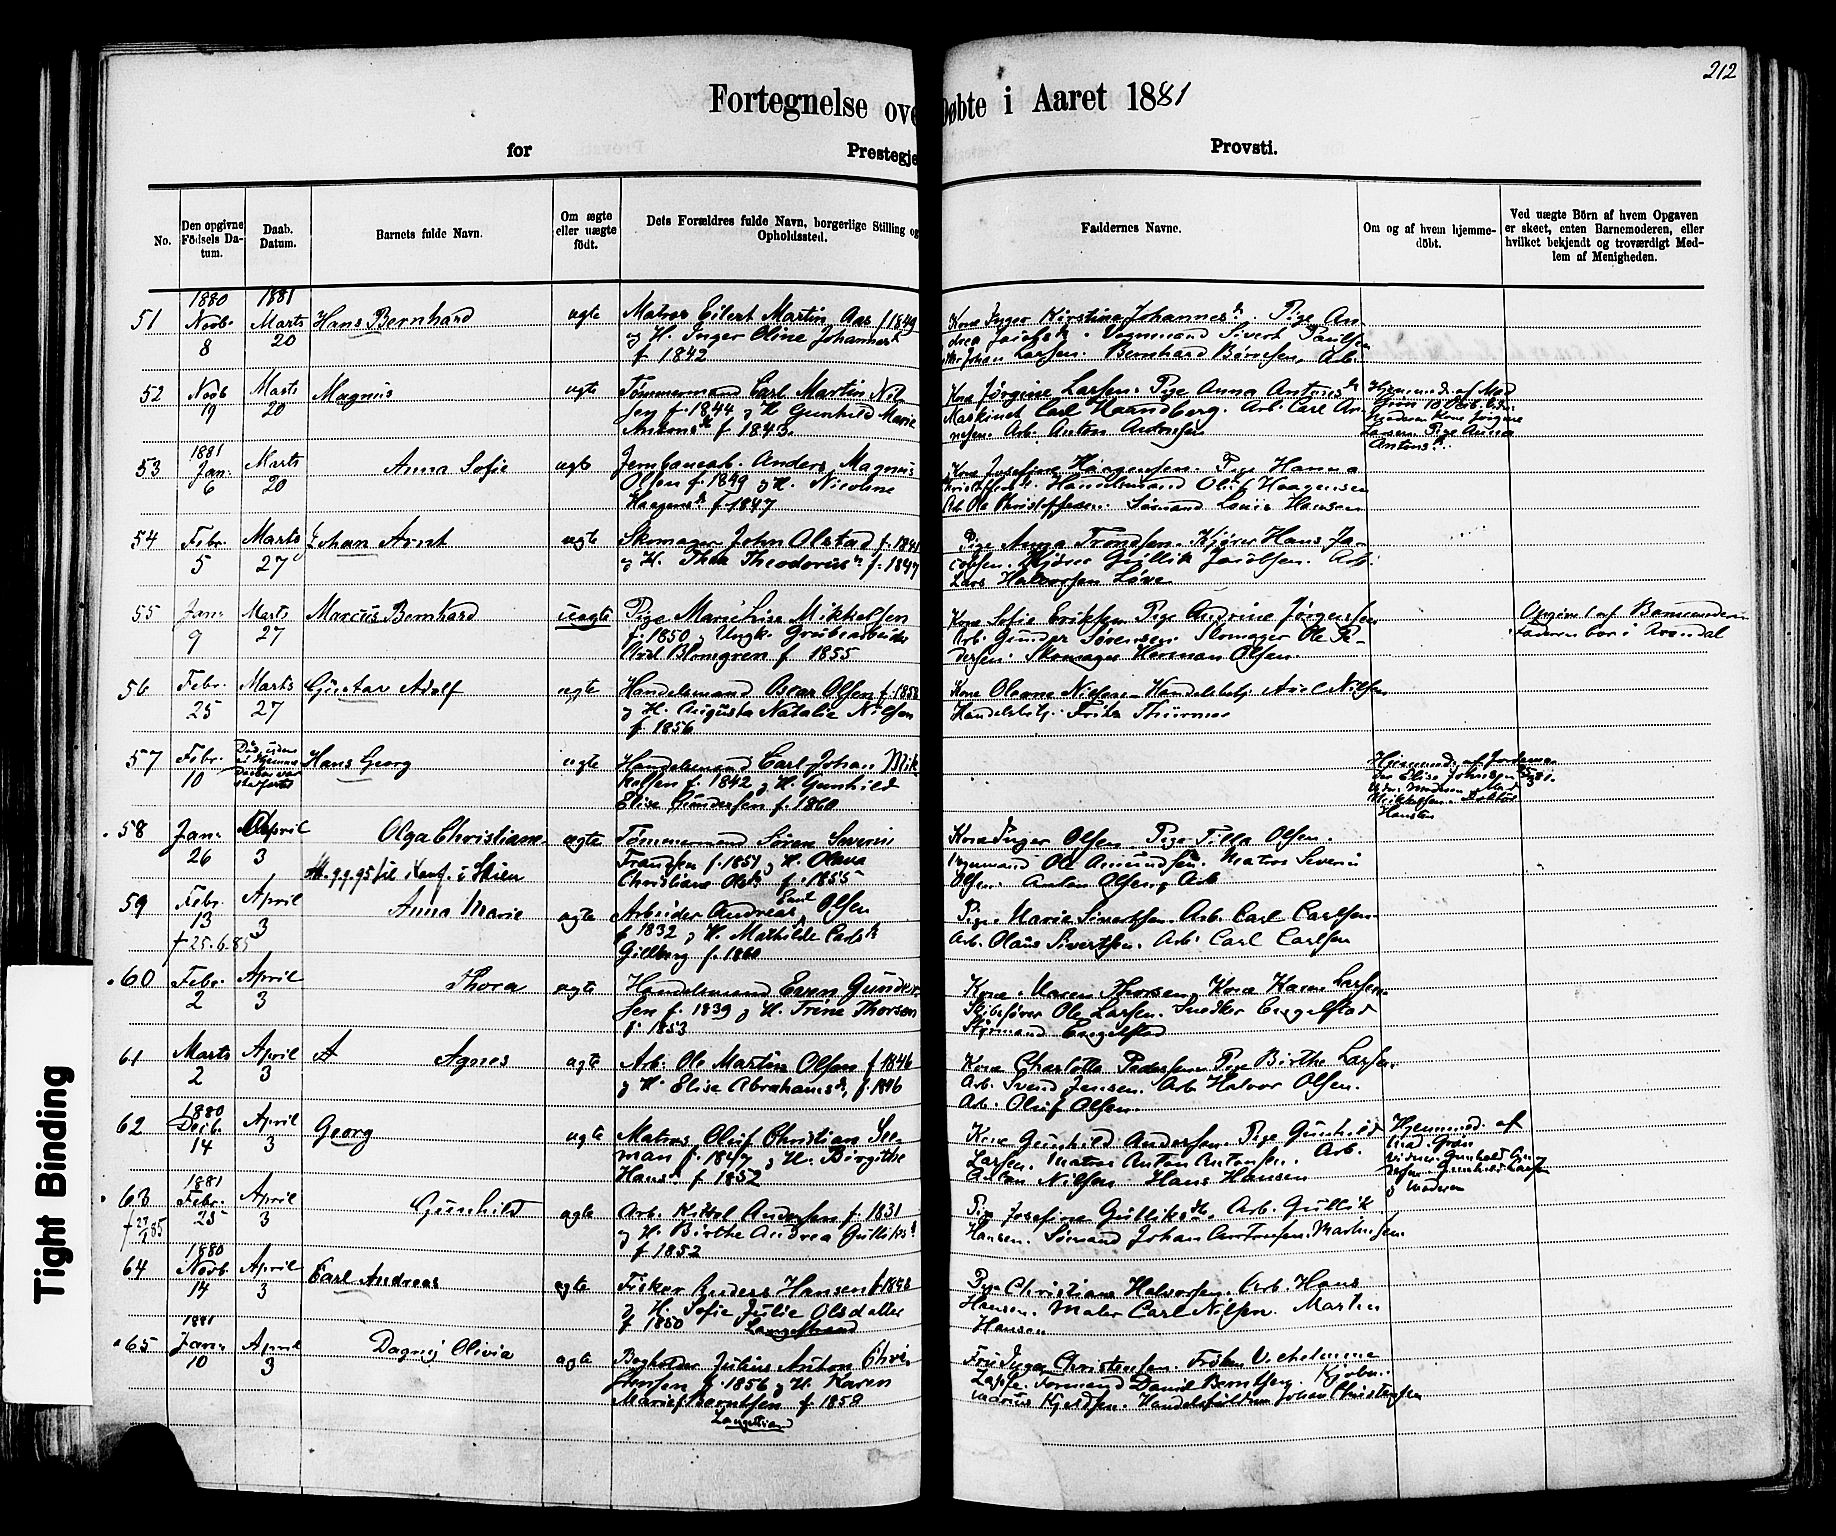 212
Fortegnelse ove Døbte i Aaret 1881
for Prestegje Provsti.
No.
Den opgivne Födsels Da-tum.
Daab. Datum.
Barnets fulde Navn.
Om ægte eller uægte födt.
Dets Forældres fulde Navn, borgerlige Stilling og Opholdssted.
Faddernes Navne.
Om og af hvem hjemme-döbt.
Ved uægte Börn af hvem Opgaven er skeet, enten Barnemoderen, eller hvilket bekjendt og troværdigt Med-lem af Menigheden.
51 1880 Novb. 8 1881 Marts 20 Hans Bernhard ægte Matros Eilert Martin Aas f 1849
og H. Inger Oline Johannesd
f 1842
Kone Inger Kirstine Johannesd. Pige An-
drea Jacobsd. Vognmand Sivert Paulsen
Johan Larsen. Bernhard Børresen, Arb.
52 Novb 19 Marts 20 Magnus ægte Tømmermand Carl Martin Nil-
sen f. 1844 og H Gunhild Marie
Antonsd f 1843.
Kone Jørgine Larsen. Pige Anna Antonsd
Maskinist Carl Haandberg. Arb. Carl An-
nesen. Arb. Anton
Hjemmed. af Mad
Larsen Pige Anna
Antonsd.
53 1881 Jan. 6 Marts 20 Anna Sofie ægte Jernbanearb. Anders Magnus
Olsen f. 1849 og H. Nicoline
Haagensd f. 1847
Kone Josefine Haagensen. Pige Hanna
Kristoffersd. Handelsmand Oluf Haagensen
Arb Ole Christoffersen. Sømand Louis Hansen
54 Febr. 5 Marts 27 Johan Arnt ægte Skomager John Olstad f. 1841
og H. Thea Theodorusd f. 1847
Pige Anna Trondsen. Kjører Hans Ja-
cobsen. Kjører Gullik Jacobsen. Arb.
Lars Halvorsen Løve
55 Jan. 9 Marts 27 Marcus Bernhard uægte Pige Marie Lovise Mikkelsen
f. 1850 og Ungk. Grubearbeider
Axel Blomgren f. 1855
Kone Sofie Eriksen Pige Andrine Jørgensen
Arb. Gunder Sørensen. Skomager Ole Pe-
dersen. Skomager Herman Olsen.
Opgivet af Barnemoderen
Faderen bor i Arendal
56 Febr. 25 Marts 27 Gustav Adolf ægte Handelsmand Oscar Olsen f. 1858
og H. Augusta Natalie Nilsen
f. 1856
Kone Oleane Nielsen Handelsbetj. Axel Nilsen
Handelsbetj. Fritz Thürmer
57 Febr. 10 Død uden
at Hjemme
Daaben var
stadfæstet Hans Georg ægte Handelsmand Carl Johan Mik
kelsen f. 1842 og H. Gunhild
Elise Gundersen f. 1860
Hjemmed. af Jordemo-
der Elise Johnsen
Mikkelsen. Doktor
Hansten
58 Jan. 26 April 3 Olga Christiane ægte Tømmermand Søren Severin
Att. 9.9.95 til Konf. i Skien
Frandsen f. 1851 og H. Olava
Christiane Olsd f. 1855
Kone Inger Olsen. Pige Tilla Olsen.
Vognmand Ole Amundsen. Matros Severin
Olsen. Anton Olsen, Arb
59 Febr. 13 April 3 Anna Marie ægte Arbeider Andreas Emil Olsen
† 25.6.85
f 1832 og H. Mathilde Carlsd
Gillberg f. 1860
Pige Marie Sivertsen. Arb. Carl Carlsen.
Arb. Olaus Sivertsen. Arb. Carl Carlsen
60 Febr. 2 April 3 Thora ægte Handelsmand Even Gunder-
sen f. 1839 og H. Trine Thorsen
f. 1853
Kone Maren Thorsen. Kone Karen Larsen.
Skibsfører Ole Larsen. Snedker Engelstad
Styrmand Engelstad
61 Marts 2 April 3 A Agnes ægte Arb. Ole Martin Olsen f 1846
og H. Elise Abrahamsd, f. 1846
Kone Charlotte Pedersen Pige Birthe Larsen.
Arb. Svend Jensen. Arb Halvor Olsen.
Arb. Oluf Olsen.
62 1880 Decb. 14 April 3 Georg ægte Matros Oluf Christian See-
man f. 1847 og H. Birgitte
Hansd f 1852
Kone Gunhild Andersen. Pige Gunhild
Larsen. Matros Anton Antonsen. Arb.
Anton Nilsen Hans Hansen
Hjemmed. af
Mad. Grøn
Vidner: Gunhild
Gunhild Larsen
og Moderen
63 1881 Febr. 25 April 3 Gunhild ægte Arb. Kittel Andersen f. 1831
og H. Birthe Andrea Gulliksd
f. 1852
Pige Josefine Gulliksd. Arb. Gullik
Hansen. Sømand Johan Martinsen.
64 1880 Novb 14 April 3 Carl Andreas ægte Fisker Anders Hansen f 1848
og H. Sofie Julie Olsdatter
f. 1850 Langestrand
Pige Christiane Halvorsen. Arb. Hans
Hansen. Maler Carl Nilsen. Martin
Hansen
65 1881 Jan. 10 April 3 Dagny Olivia ægte Bogholder Julius Anton Chri-
stensen f. 1856 og H. Karen
Marie Berntsen f. 1858
Langestrand
Fru Inger Christensen. Frøken Vilhelmine
Formand David Berntsen. Kjøbm.
Marius Kjeldsen. Johan Christensen
Tight Binding